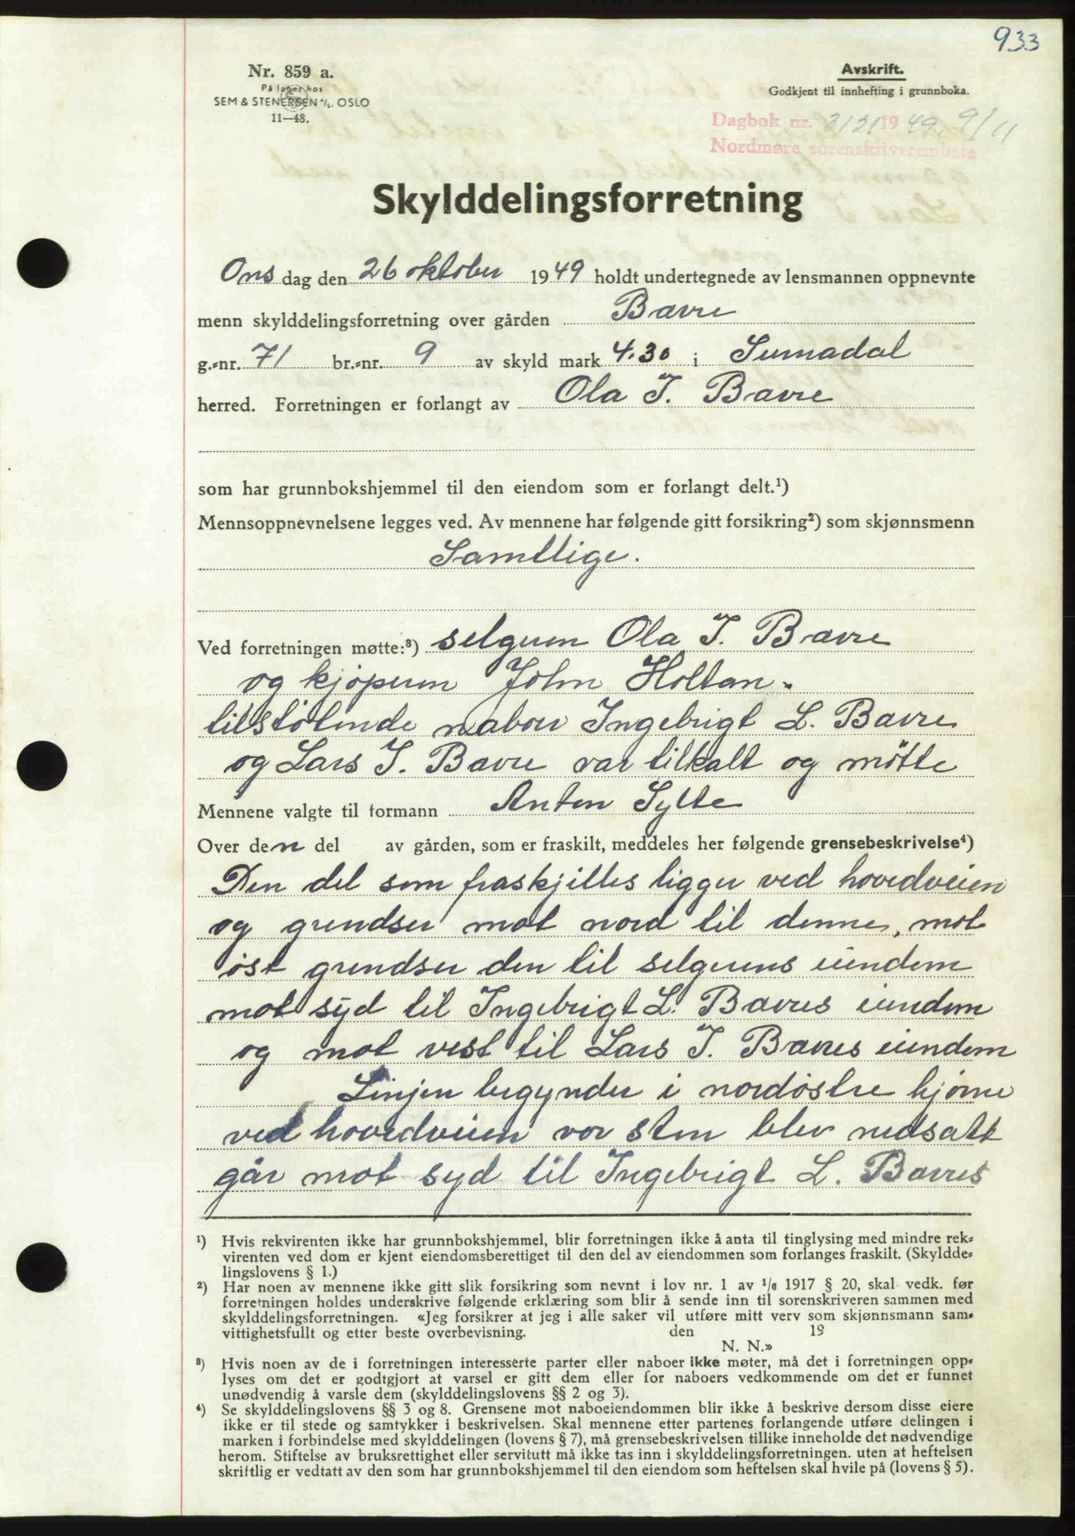 933
Nr. 859 a.
På lager hos
SEM & STENERSEN A/S, OSLO
11—48.
Avskrift.
Godkjent til innhefting i grunnboka.
Dagbok nr. 3121 19 49. 9/11
Nordmøre sorenskriverembete
Skylddelingsforretning
Ons dag den 26 oktober 1949 holdt undertegnede av lensmannen oppnevnte
menn skylddelingsforretning over gården Bævre
g.-nr. 71 br.-nr. 9 av skyld mark 4.30 i Surnadal
herred. Forretningen er forlangt av Ola J. Bævre
som har grunnbokshjemmel til den eiendom som er forlangt delt.¹)
Mennsoppnevnelsene legges ved. Av mennene har følgende gitt forsikring²) som skjønnsmenn
Samtlige.
Ved forretningen møtte:³) selgeren Ola J. Bævre
og kjøperen John Holtan.
tilstøtende naboer Ingebrigt L. Bævre
og Lars J. Bævre var tilkalt og møtte
Mennene valgte til formann Anton Sylte
Over den del av gården, som er fraskilt, meddeles her følgende grensebeskrivelse⁴)
Den del som fraskjilles ligger ved hovedveien
og grendser mot nord til denne, mot
øst grendser den til selgerens eiendem
mot syd til Ingebrigt L. Bævres eiendem
og mot vest til Lars J. Bævres eiendem
Linjen begynder i nordöstre hjørne
ved hovedveien vor sten blev nedsatt
går mot syd til Ingebrigt L. Bævres
¹) Hvis rekvirenten ikke har grunnbokshjemmel, blir forretningen ikke å anta til tinglysing med mindre rek-
virenten ved dom er kjent eiendomsberettiget til den del av eiendommen som forlanges fraskilt. (Skyldde-
lingslovens § 1.)
²) Har noen av mennene ikke gitt slik forsikring som nevnt i lov nr. 1 av 1/6 1917 § 20, skal vedk. før
forretningen holdes underskrive følgende erklæring som blir å sende inn til sorenskriveren sammen med
skylddelingsforretningen. «Jeg forsikrer at jeg i alle saker vil utføre mitt verv som skjønnsmann sam-
vittighetsfullt og etter beste overbevisning. den 19
N. N.»
³) Hvis noen av de i forretningen interesserte parter eller naboer ikke møter, må det i forretningen opp-
lyses om det er godtgjort at varsel er gitt dem eller for naboers vedkommende om det er funnet
unødvendig å varsle dem (skylddelingslovens §§ 2 og 3).
⁴) Se skylddelingslovens §§ 3 og 8. Grensene mot naboeiendommen blir ikke å beskrive dersom disse eiere
ikke er til stede og samtykker i beskrivelsen. Skal mennene etter partenes forlangende utføre delingen i
marken i forbindelse med skylddelingen (lovens § 7), må grensebeskrivelsen tillike inneholde det nødvendige
herom. Stiftelse av bruksrettighet eller servitutt må ikke tas inn i skylddelingsforretningen. uten at heftelsen
skriftlig er vedtatt av den som har grunnbokshjemmel til den eiendom som heftelsen skal hvile på (lovens § 5).